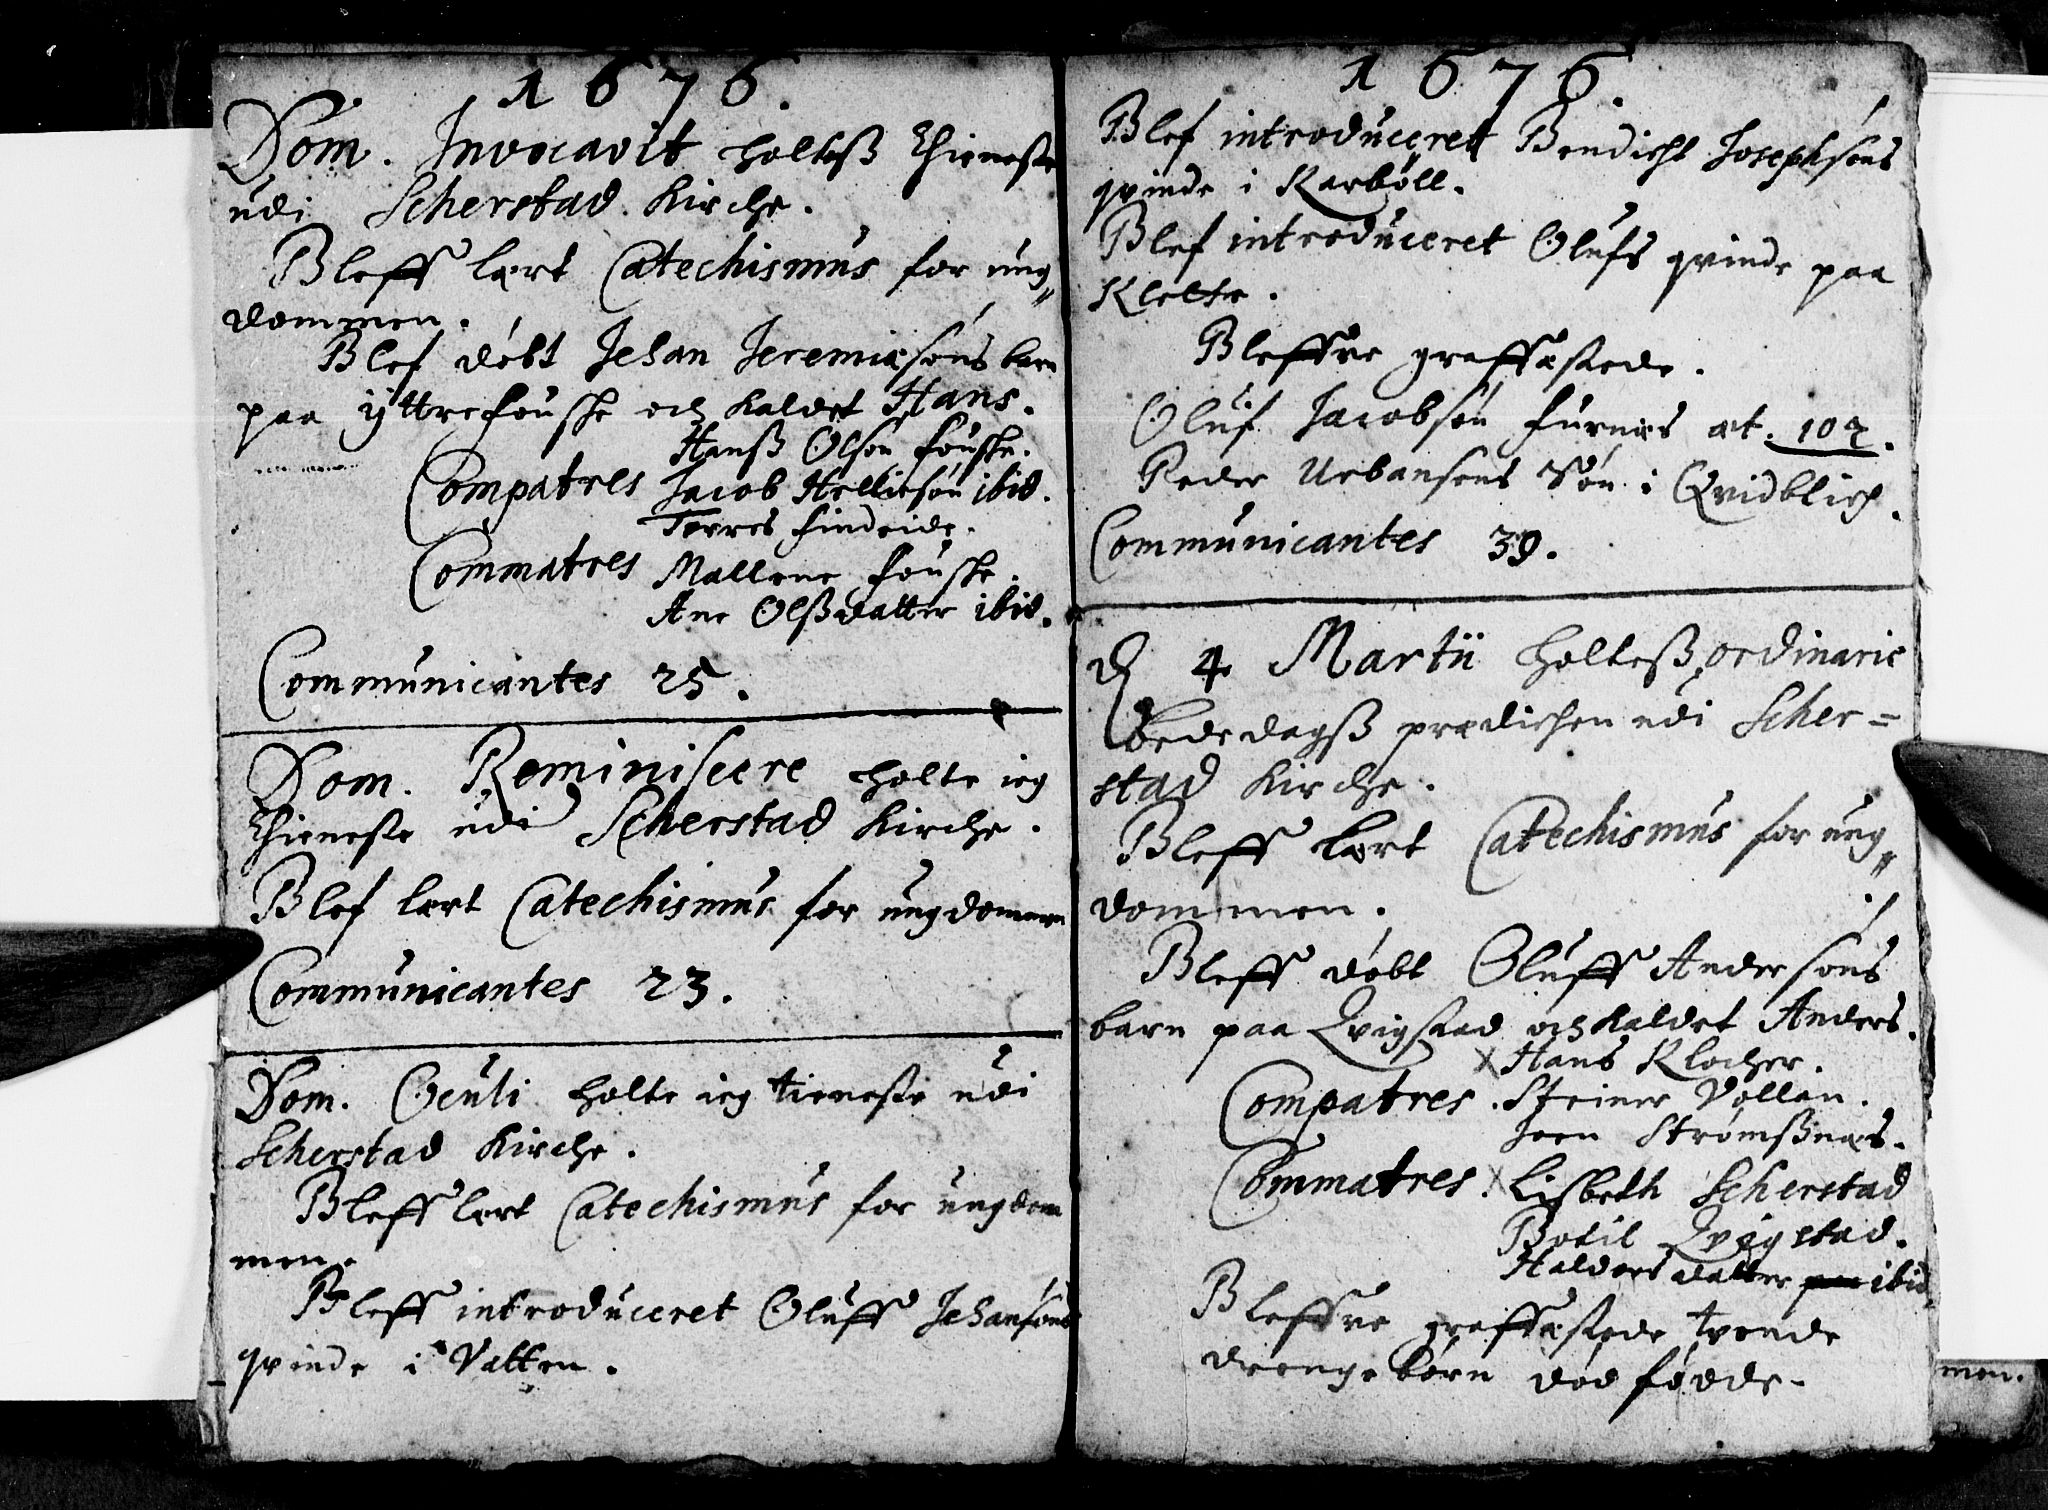 1676.
Dom. Invocavit holteß thieneste
udi Scherstad Kirche.
Bleff lært Catechismus for ung„
dommen.
Blef døbt Jehan Jeremiæsøns barn
paa Yttrefouske och kaldet Hans.
Hanß Olson fouske.
Compatres Jacob Hellicson ibid.
Torres findeide.
Commatres Mallene fouske.
Ane Olßdatter ibid.
Communicantes 25.
Dom. Reminiscere holte ieg
thieneste udi Scherstad Kirche.
Blef lært Catechismus for ungdommen
Communicantes 23.
Dom. Oculi holte ieg tieneste udi
Scherstad Kirche.
Bleff lært Catechismus for ungdom
men.
Bleff introduceret Oluff Jehansøns
qvinde i Vatten.
1676.
Blef introduceret Bendicht Josephsøns
qvinde i Karbøll.
Blef introduceret Olufs qvinde paa
Klette.
Bleffve graffæstede.
Oluf Jacobsøn furnæs æt. 102.
Peder Urbansøns Søn i Qvidblich.
Communicantes 39.
D 4 Martii holteß ordinarie
bededagß prædichen udi Scher=
stad Kirche.
Bleff lært Catechismus for ung„
dommen.
Bleff døbt Oluff Andersøns
barn paa Qvigstad och kaldet Anders.
Hans Klocher.
Compatres. Steiner Vollan.
Joen Strømßnæs.
Commatres. Lisbeth Scherstad
Botil Qvigstad.
Haldors datter ibid.
Bleffve graffæstede tvende
drenge børn død fødde.
men.